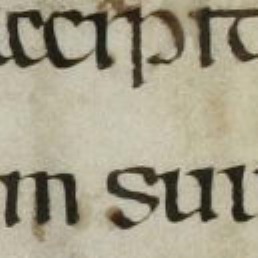 accipit
m sui